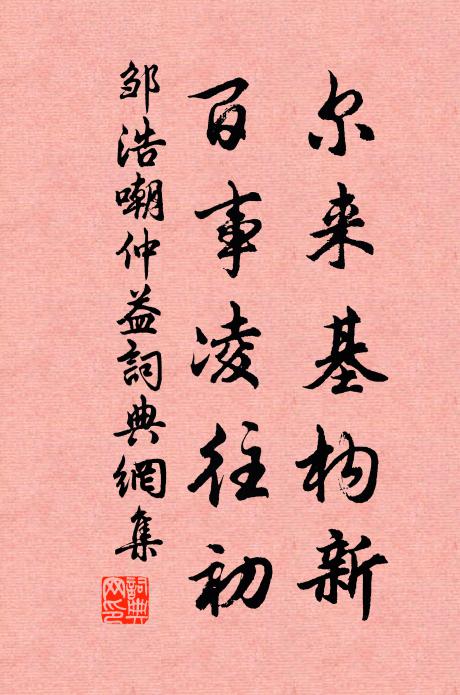 尔来基构新
百事凌往初
邹浩嘲仲益詞典網集
詞典网印